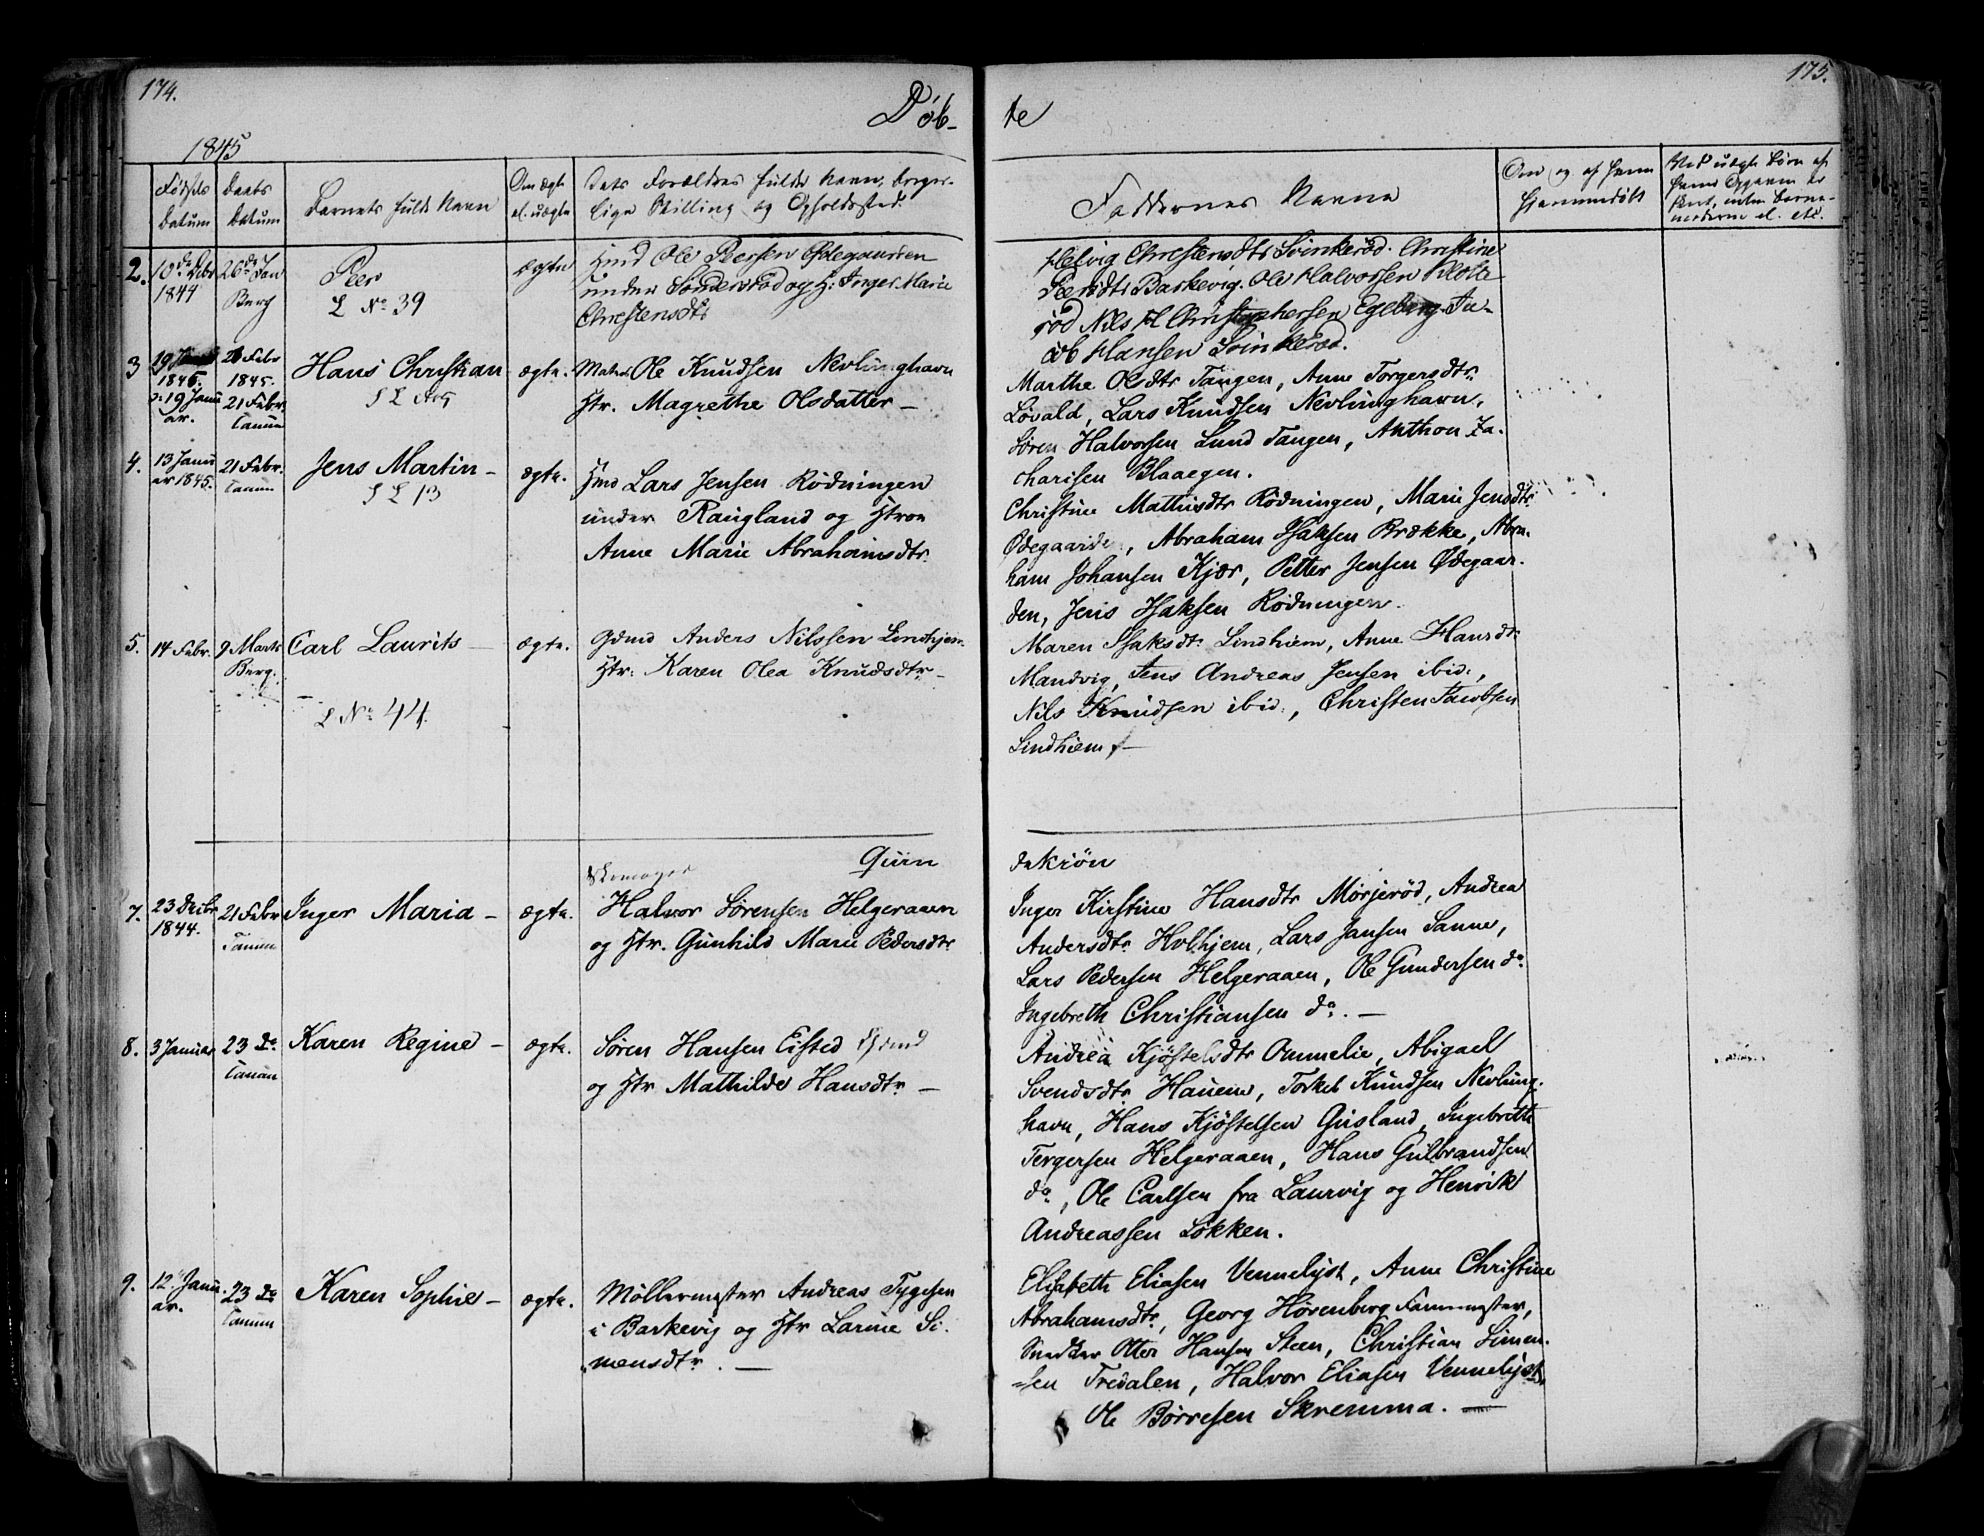 174.
Døb-
1845
Fødsels Datum
Daabs Datum
Barnets fulde Navn
Om ægte el. uægte
Dets Forældres fulde Navn, borger-
lige Stilling og Opholdssted.
2. 10de Debr 1844
26de Jan Berg
Peer
L No 39
ægte
Hmd Ole Peersen Ødegaarden
under Søndersrød og H: Inger Marie
Chrestensdtr
3 19 1845. 19 Janu ar.
Febr 1845. 21 Febr. Tanum
Hans Christian
ægte.
Matr. Ole Knudsen Nevlunghavn
Htr. Magrethe Olsdatter —
4. 13 Janu ar 1845.
21 Febr. Tanum
Jens Martin —
S L 13
ægte.
Hmd Lars Jensen Rødningen
under Raugland og Htron
Anne Marie Abrahamsdtr.
5. 14 Febr.
9 Marts Berg.
Carl Laurits —
L No 44.
ægte.
Gdmd Anders Nilssen Lindhjem
Htr: Karen Olea Knudsdtr —
Quin
7. 23 Decbr 1844.
21 Febr Tanum
Inger Maria —
ægte.
Halvor Sørensen Helgeraaen
og Htr. Gunhild Marie Pedersdtr
8. 3 Januar
23 do Tanum
Karen Regine —
ægte.
Søren Hansen Eisted
og Htr Mathilde Hansdtr —
9. 12 Janu ar.
23 do Tanum
Karen Sophie —
ægte.
Møllermester Andreas Tygesen
i Barkevig og Htr Larine Si-
mensdtr. —
175.
te
Faddernes Navne
Om og af hvem
hjemmedøbt
Helvig Chrestensdtr Svinkerød. Christine
Peersdtr Barkevig. Ole Halvorssen Klotte-
rød Nils H Christophersen Egeberg Ja-
cob Hansen Svinkerød.
Marthe Olsdtr Tangen, Anne Torgersdtr.
Løvald, Lars Knudsen Nevlunghavn,
Søren Halvorsen Lund Tangen, Anthon Za-
charisen Blaaegen.
Christine Mathisdtr Rødningen, Marie Jensdtr.
Ødegaarden, Abraham Isaksen Brække, Abra-
ham Johansen Kjær, Petter Jensen Ødegaar-
den, Jens Isaksen Rødningen.
Maren Isaksdtr. Lindhiem, Anne Hansdtr
Mandvig, Jens Andreas Jensen ibid:,
Nils Knudsen ibid:, Christen Jacobsen
Lindhiem. —
dekiøn
Inger Kirstine Hansdtr Mørjerød, Andrea
Andersdtr Holhjem, Lars Jansen Sanne,
Lars Pedersen Helgeraaen, Ole Gundersen do.
Ingebreth Christiansen do. —
Andrea Kjøstelsdtr Ommelie, Abigael
Svendsdtr Hauene, Torkel Knudsen Nevlung-
havn, Hans Kjøstelsen Gusland, Ingebrette
Tergersen Helgeraaen, Hans Gulbrandsen
do, Ole Carlsen fra Laurvig og Henrik
Andreassen Løkken.
Elisabeth Eliasen Vennelyst, Anne Christine
Abrahamsdtr, Georg Hørenberg Farvemester,
Snedker Otter Hansen Steen, Christian Simen-
sen Tredalen, Halvor Eliasen Vennelyst,
Ole Børresen Skremma. —